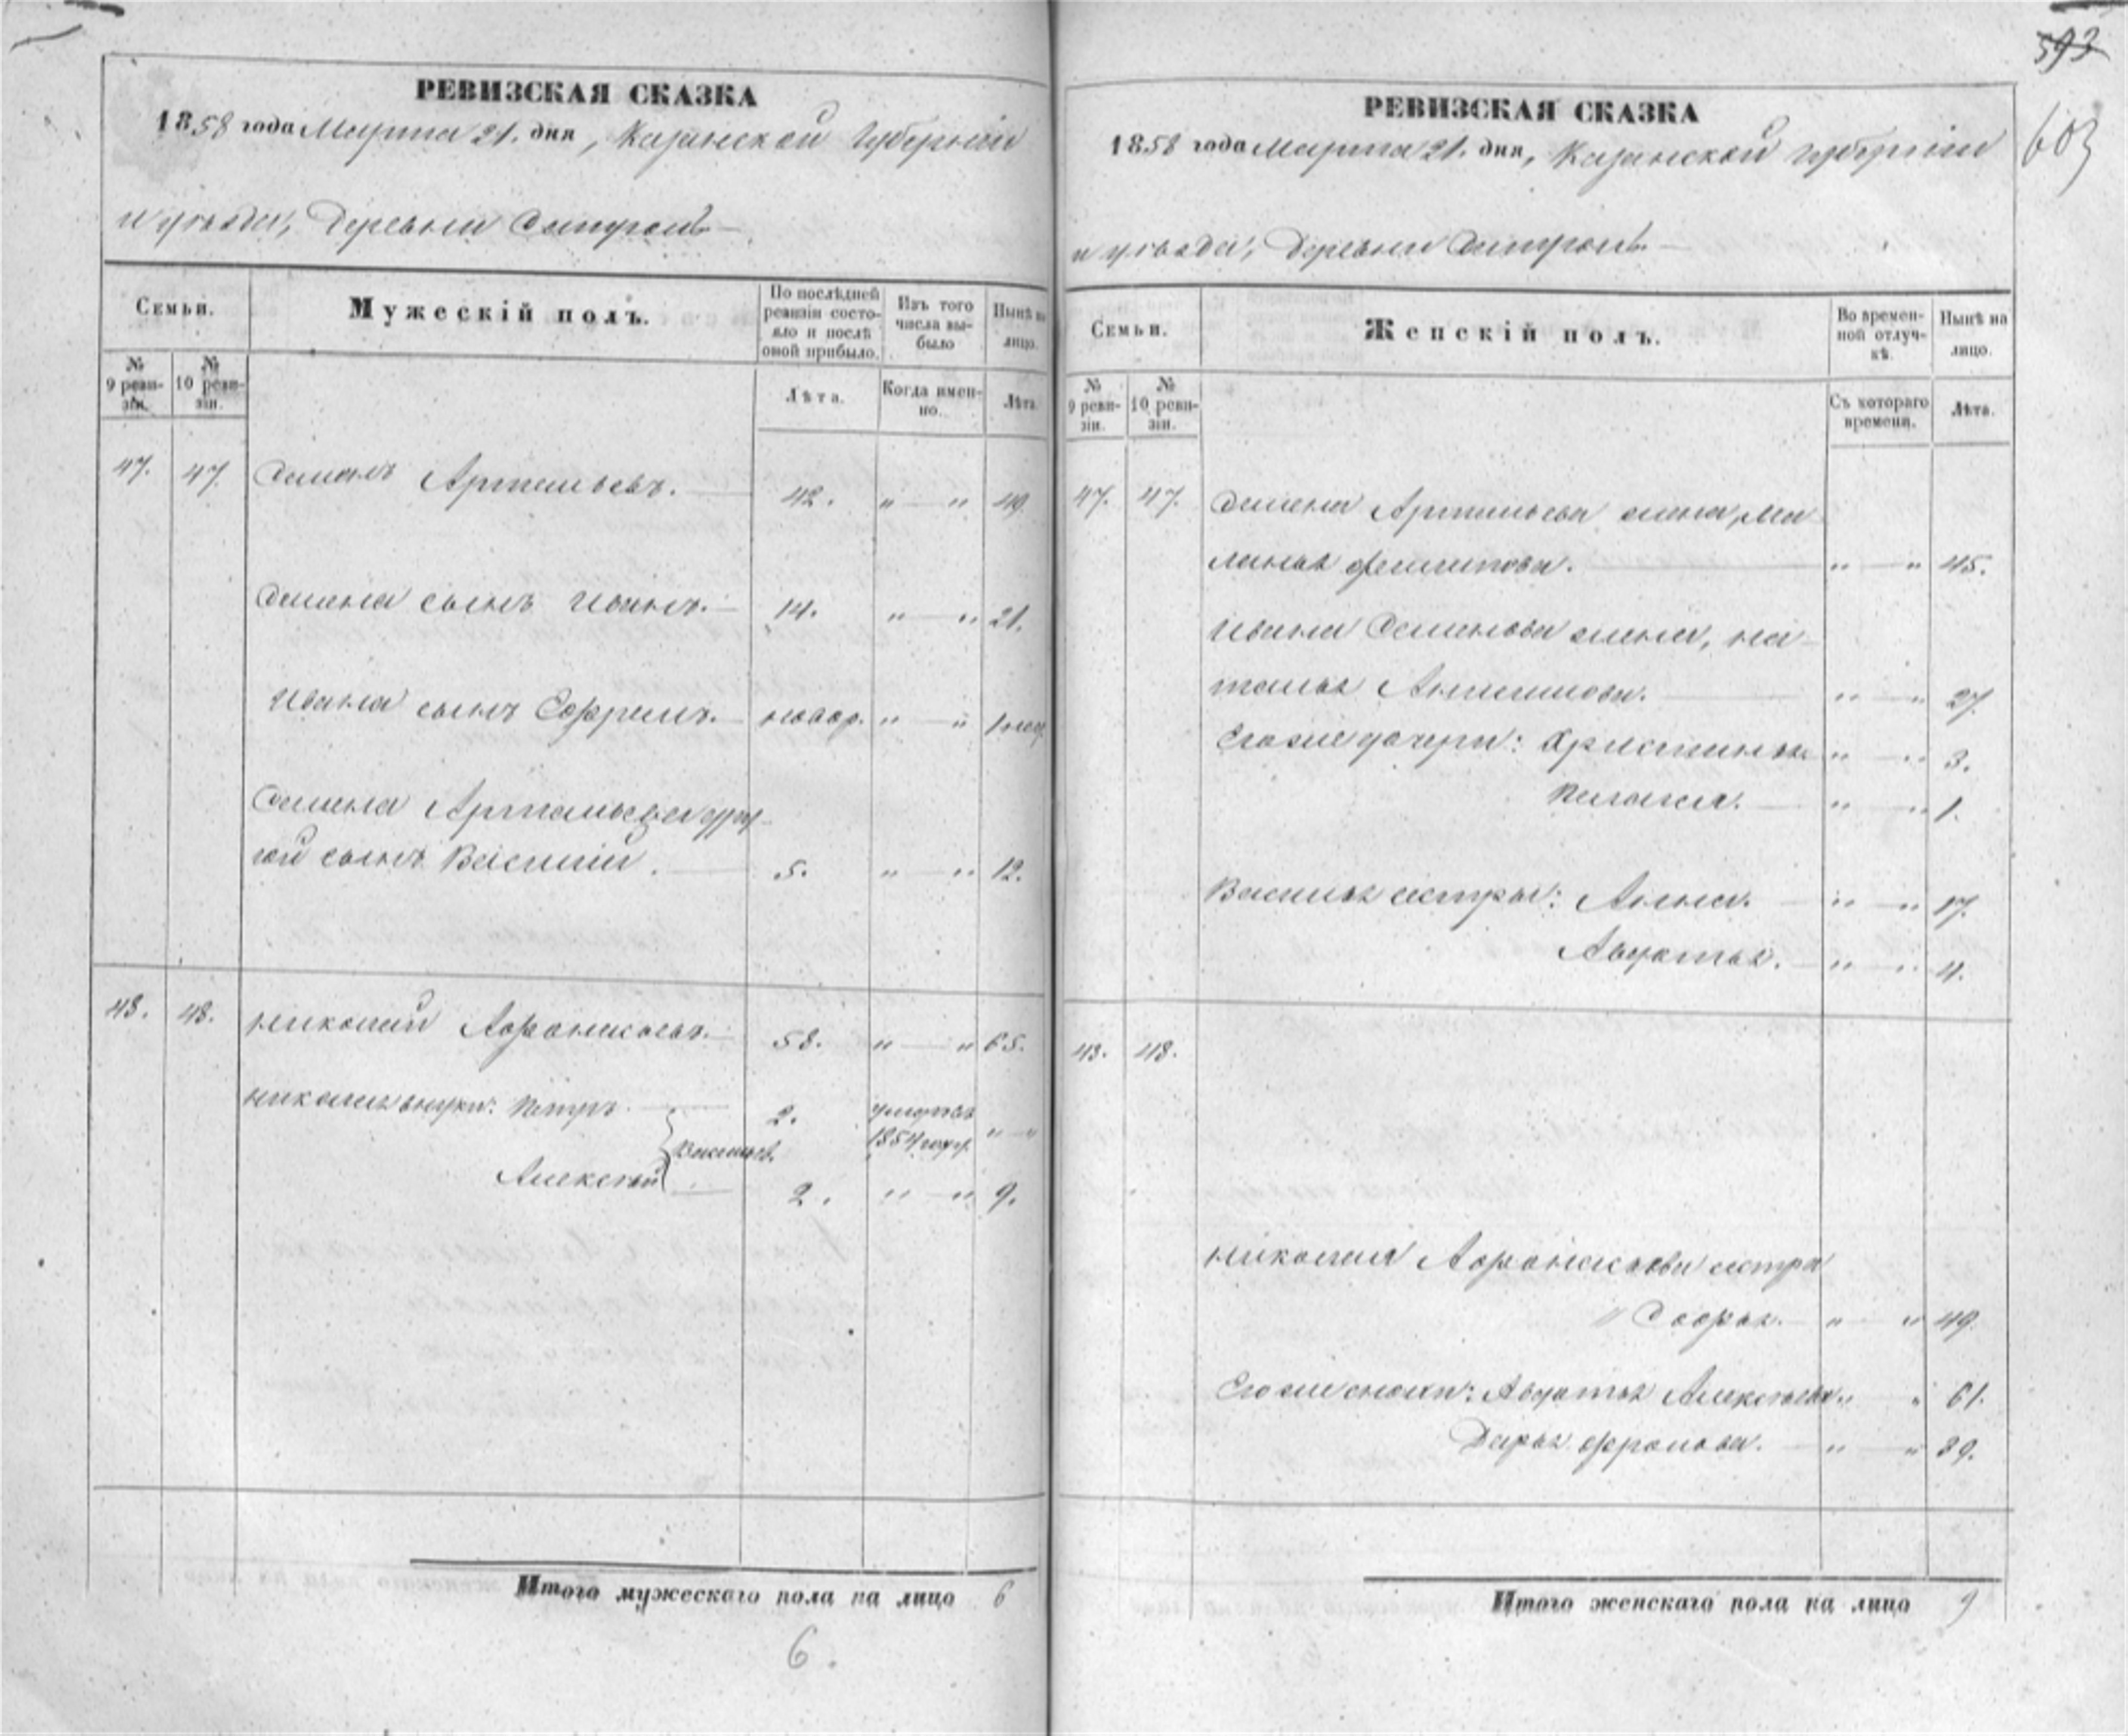 593
603
РЕВИЗСКАЯ СКАЗКА
1858 года Марта 21. дня, Казанской Губернии
и уѣзда, Деревни
Семьи.
Мужескій полъ.
По послѣдней ревизіи состояло и послѣ оной прибыло.
Изъ того числа выбыло
Нынѣ на лицо.
№ 9 ревизіи.
№ 10 ревизіи.
Лѣта.
Когда именно.
Лѣта.
47. 47. Семенъ Артемьевъ. 42. " — " 49.
Семена сынъ Иванъ. 14. " — " 21.
Ивана сынъ Ефремъ. новор. " — "
Семена Артемьева дру-
гой сынъ Василий. 5. " — " 12.
48. 48. Николай Афонасьевъ. 58. " — " 65.
Николая внуки: Петръ 2. умеръ 1854 года " — "
Васильев.
Алексѣй 2. " — " 9.
Итого мужескаго пола на лицо 6
6.
РЕВИЗСКАЯ СКАЗКА
1858 года Марта 21. дня, Казанской Губернии
и уѣзда, Деревни
Семьи.
Женскій полъ.
Во временной отлучкѣ.
Нынѣ на лицо.
№ 9 ревизіи.
№ 10 ревизіи.
Съ котораго времени.
Лѣта.
47. 47. Семена Артемьева жена, Ма-
ланья Филипова. " — " 45.
Ивана Семенова жена, На-
талья " — " 27.
Его же дочери: Христинья " — " 3.
Пелагея. " — " 1.
Василья сестры: Анна. " — " 17.
Авдотья. " — " 4.
48. 48.
Николая Афонасьева сестра
Софья. " " 49.
Его же снохи: Авдотья Алексѣева " " 61.
Дарья Фролова. " — " 39.
Итого женскаго пола на лицо 9